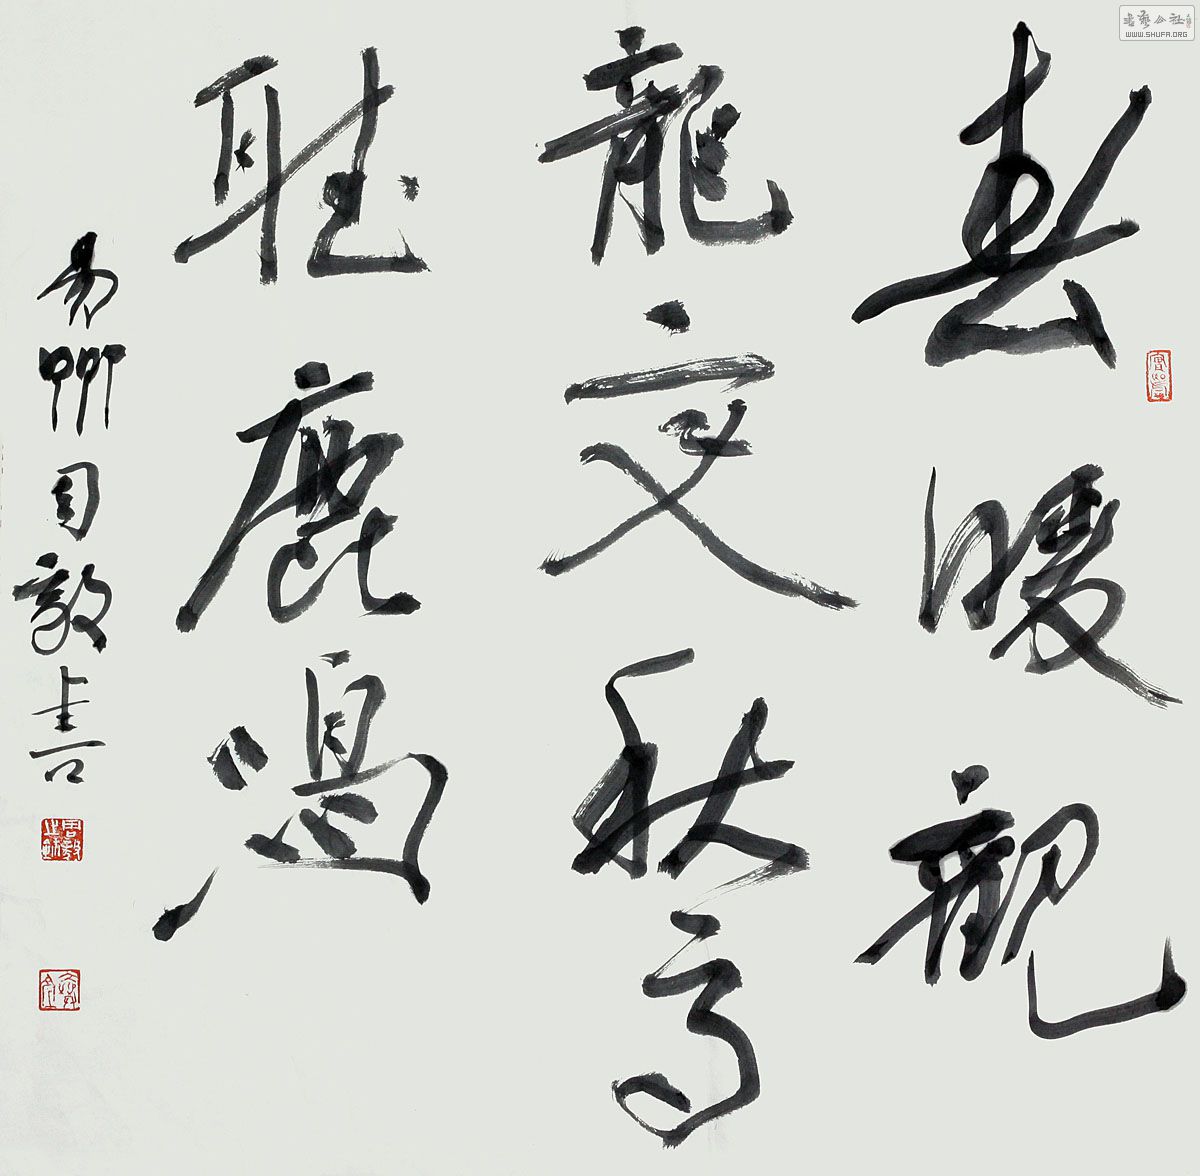 春暖觀
龍变秋高
聽鹿鳴
易州周敦書
書藝公社
WWW.SHUFA.ORG